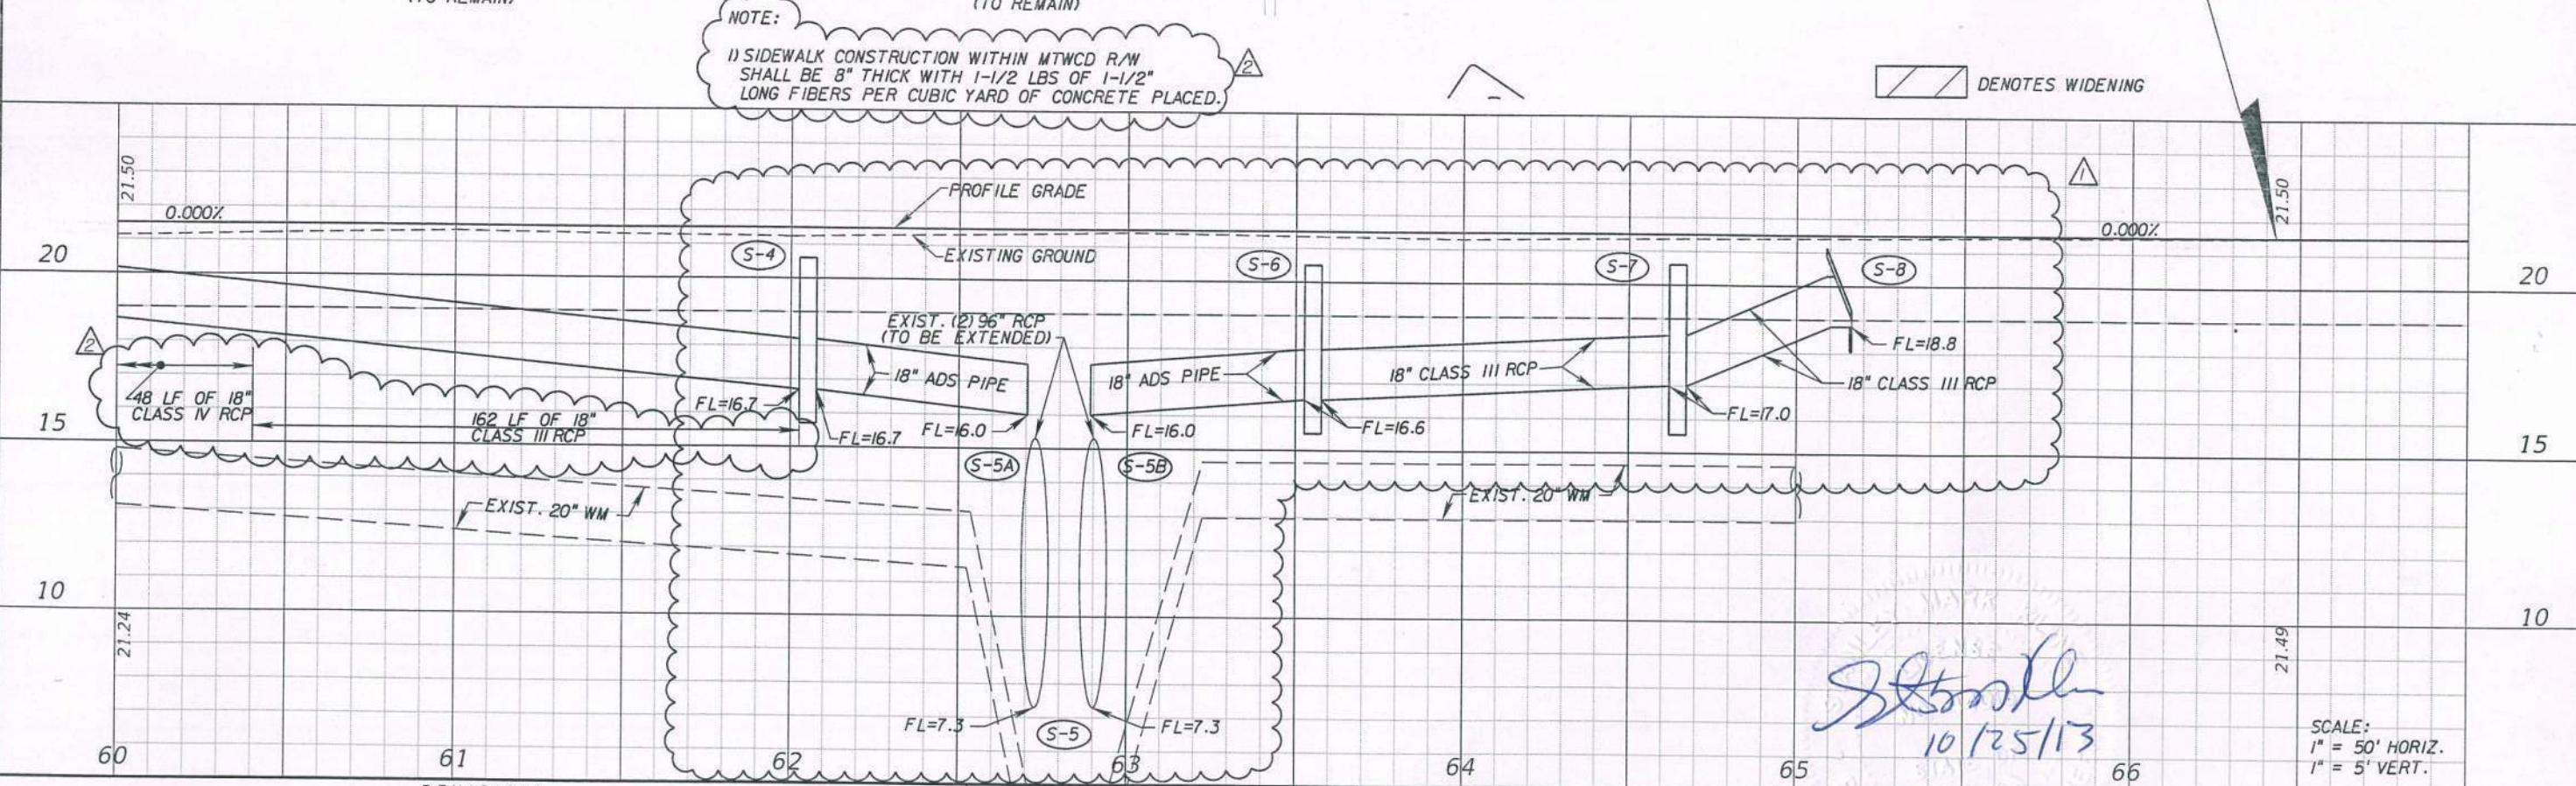 (TO REMAIN)
(TO REMAIN)
NOTE:
1) SIDEWALK CONSTRUCTION WITHIN MTWCD R/W
SHALL BE 8" THICK WITH 1-1/2 LBS OF 1-1/2"
LONG FIBERS PER CUBIC YARD OF CONCRETE PLACED.
2
DENOTES WIDENING
21.50
PROFILE GRADE
1
21.50
0.000%
0.000%
20
S-4
EXISTING GROUND
S-6
S-7
S-8
20
EXIST. (2) 96" RCP
(TO BE EXTENDED)
2
FL=18.8
18" ADS PIPE
18" ADS PIPE
18" CLASS III RCP
18" CLASS III RCP
48 LF OF 18"
CLASS IV RCP
FL=16.7
162 LF OF 18"
CLASS III RCP
FL=17.0
15
FL=16.7
FL=16.0
FL=16.0
FL=16.6
15
S-5A
S-5B
EXIST. 20" WM
EXIST. 20" WM
10
10
21.24
21.49
FL=7.3
S-5
FL=7.3
10/25/13
SCALE:
1" = 50' HORIZ.
1" = 5' VERT.
60
61
62
63
64
65
66